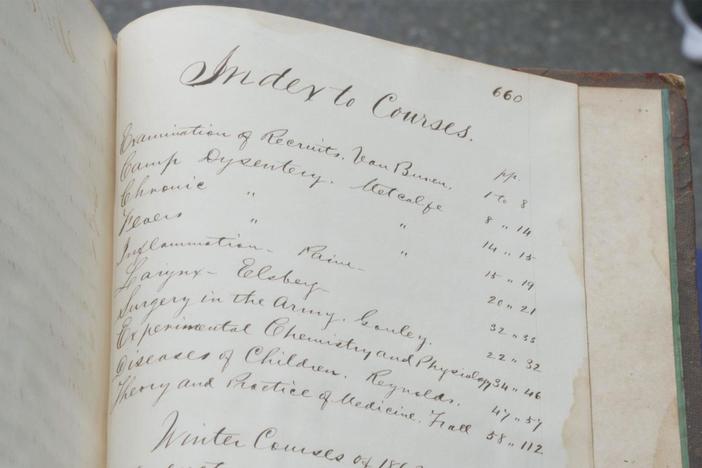 660
Index to Courses.
pp.
Examination of Recruits. Van Buren. 1 to 8
Camp Dysentery. Metcalfe 8 " 14
Chronic " " 14 " 15
Fevers " " 15 " 19
Inflammation - Paine - 20 " 21
Larynx - Elsberg 32 " 33
Surgery in the Army. Gouley. 22 " 32
Experimental Chemistry and Physiology 34 " 46
Diseases of Children. Reynolds. 47 " 57
Theory and Practice of Medicine. 58 " 112
Winter Courses of